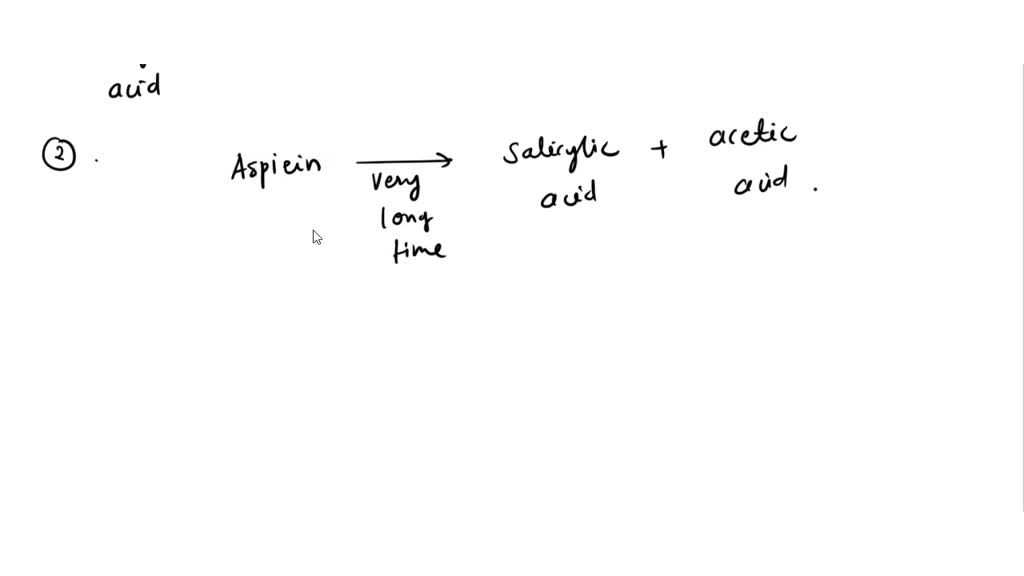 acid
② . Aspirin → salicylic + acetic
very acid acid .
long
time